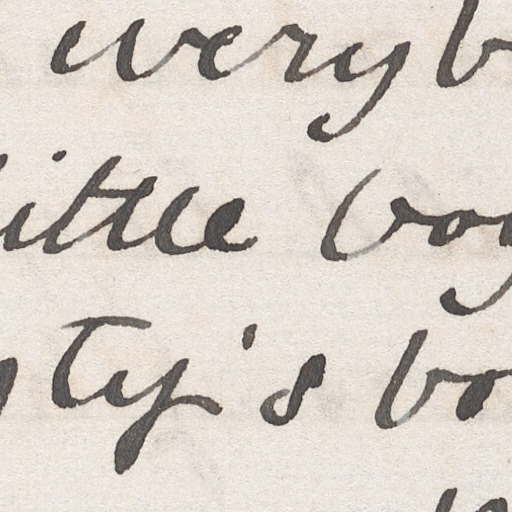 veryb
little boy
ty's bo